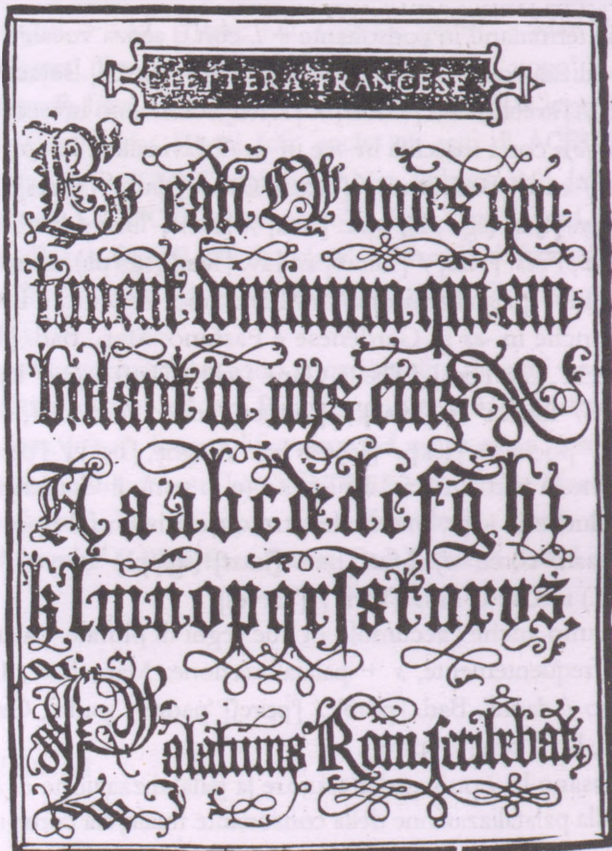 LETTERA FRANCESE
Beati Omnes qui
timent dominum, qui am-
bulant in viis eius
A a b c d d e f g h i
k l m n o p q r ſ s t v x y z,
Palatinus Rom. scribebat,